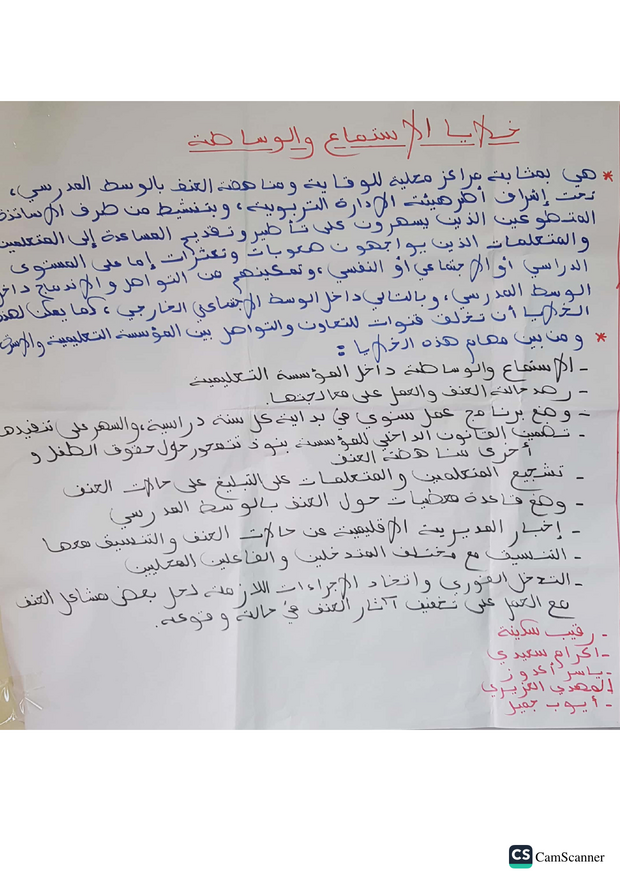 خلايا الاستماع والوساطة
* هي بمثابة مراكز محلية للوقاية ومناهضة العنف بالوسط المدرسي،
تحت إشراف أطر هيئة الإدارة التربوية، وبتنشيط من طرف الأساتذة
المتطوعين الذين يسهرون على تأطير وتقديم المساعدة إلى المتعلمين
والمتعلمات الذين يواجهون صعوبات وتعثرات إما على المستوى
الدراسي أو الاجتماعي أو النفسي، وتمكينهم من التواصل والاندماج داخل
الوسط المدرسي، وبالتالي داخل الوسط الاجتماعي الخارجي، كما يمكن لهذه
الخلايا أن تخلق قنوات للتعاون والتواصل بين المؤسسة التعليمية
* ومن بين مهام هذه الخلايا:
- الاستماع والوساطة داخل المؤسسة التعليمية
- رصد حالة العنف والعمل على معالجتها.
- وضع برنامج عمل سنوي في بداية كل سنة دراسية، والسهر على تنفيذه
- تضمين القانون الداخلي للمؤسسة بنود تتمحور حول حقوق الطفل و
أخرى مناهضة العنف
- تشجيع المتعلمين والمتعلمات على التبليغ على حالات العنف
- وضع قاعدة معطيات حول العنف بالوسط المدرسي
- إخبار المديرية الإقليمية عن حالات العنف والتنسيق معها
- التنسيق مع مختلف المتدخلين والفاعلين المحليين
- التدخل الفوري واتخاد الإجراءات اللازمة لحل بعض مشاكل العنف
مع العمل على تخفيف آثار العنف في حالة وقوعه.
- رقيب سكينة
- اكرام سعيدي
- ياسر أغدوز
- المهدي العزيزي
- أيوب جميل
CS CamScanner